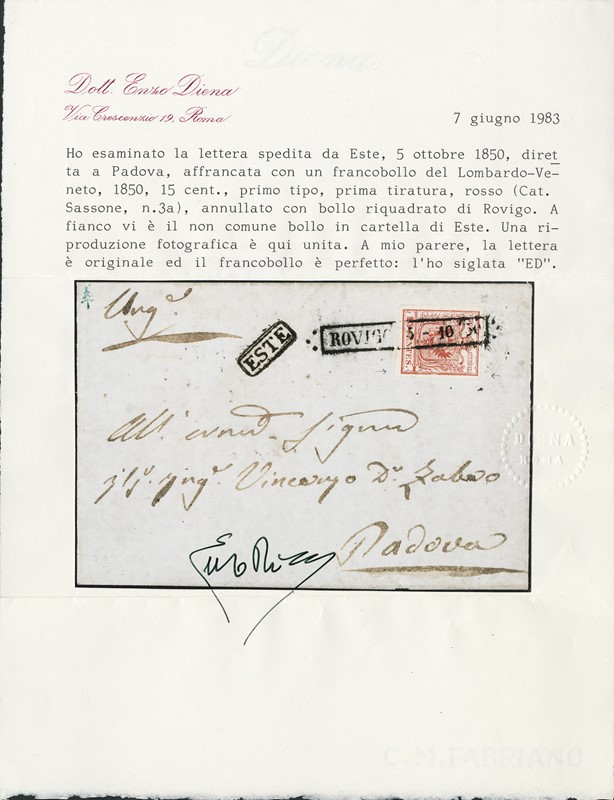 Diena
Dott. Enzo Diena
Via Crescenzio 19, Roma
7 giugno 1983
Ho esaminato la lettera spedita da Este, 5 ottobre 1850, diret
ta a Padova, affrancata con un francobollo del Lombardo-Ve-
neto, 1850, 15 cent., primo tipo, prima tiratura, rosso (Cat.
Sassone, n.3a), annullato con bollo riquadrato di Rovigo. A
fianco vi è il non comune bollo in cartella di Este. Una ri-
produzione fotografica è qui unita. A mio parere, la lettera
è originale ed il francobollo è perfetto: l'ho siglata "ED".
ESTE
ROVIGO 5 - 10
CENTES.
DIENA
ROMA
Vincenzo
Padova
C.M.FABRIANO